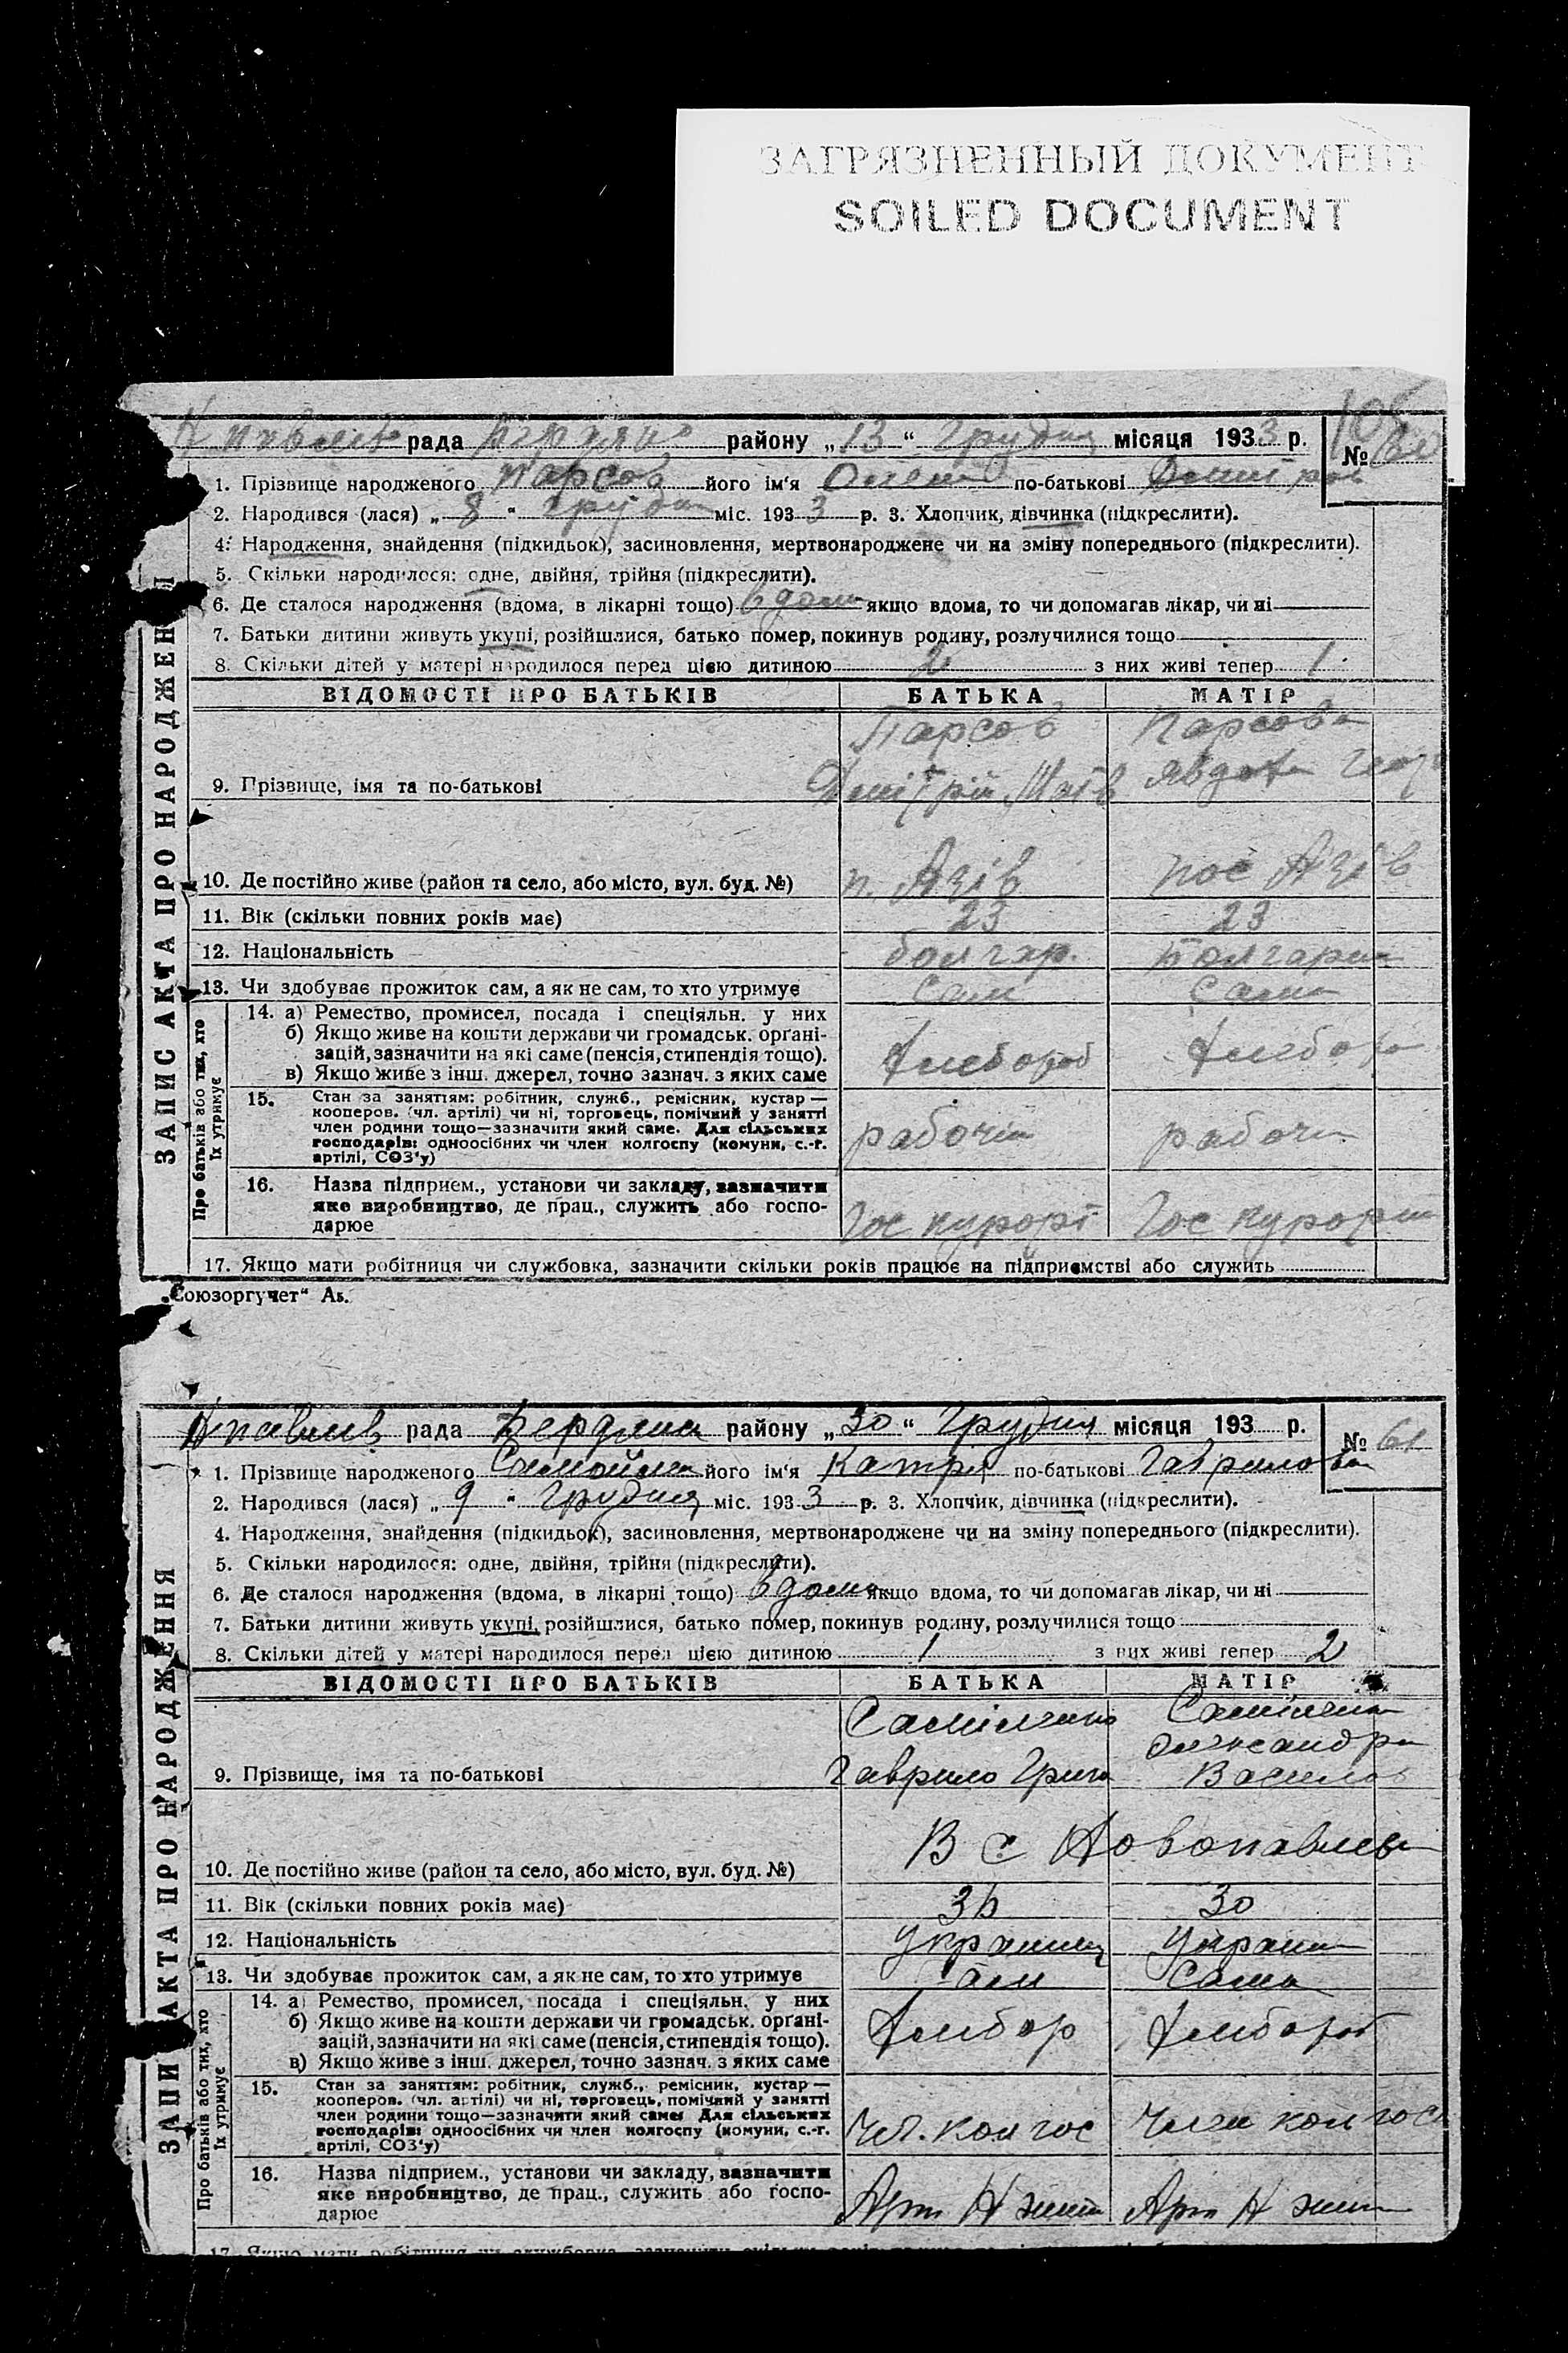 ЗАГРЯЗНЕННЫЙ ДОКУМЕНТ
SOILED DOCUMENT
рада району „13“ Грудня місяця 1933 р.
№ 60
1. Прізвище народженого Парсов його ім'я по-батькові
2. Народився (лася) „8“ Грудня міс. 1933 р. 3. Хлопчик, дівчинка (підкреслити).
4. Народження, знайдення (підкидьок), засиновлення, мертвонароджене чи на зміну попереднього (підкреслити).
5. Скільки народилося: одне, двійня, трійня (підкреслити).
6. Де сталося народження (вдома, в лікарні тощо) вдома якщо вдома, то чи допомагав лікар, чи ні
7. Батьки дитини живуть укупі, розійшлися, батько помер, покинув родину, розлучилися тощо
8. Скільки дітей у матері народилося перед цією дитиною 2 з них живі тепер 1
ЗАПИС АКТА ПРО НАРОДЖЕН
ВІДОМОСТІ ПРО БАТЬКІВ БАТЬКА МАТІР
Парсов Парсова
9. Прізвище, імя та по-батькові Явдоха
10. Де постійно живе (район та село, або місто, вул. буд. №) п. Азів пос Азів
11. Вік (скільки повних років має) 23 23
12. Національність болгар.
13. Чи здобуває прожиток сам, а як не сам, то хто утримує Сам Сама
Про батьків або тих, хто їх утримує
14. а) Ремество, промисел, посада і спеціяльн. у них
б) Якщо живе на кошти держави чи громадськ. органі-
зацій, зазначити на які саме (пенсія, стипендія тощо). Хлебороб
в) Якщо живе з інш. джерел, точно зазнач. з яких саме
15. Стан за заняттям: робітник, служб., ремісник, кустар —
кооперов. (чл. артілі) чи ні, торговець, помічний у занятті
член родини тощо—зазначити який саме. Для сільських
господарів: одноосібних чи член колгоспу (комуни, с.-г.
артілі, СОЗ'у)
16. Назва підприєм., установи чи закладу, зазначити
яке виробництво, де прац., служить або госпо-
дарює Гос курорт
17. Якщо мати робітниця чи службовка, зазначити скільки років працює на підприємстві або служить
„Союзоргучет“
рада району „30“ Грудня місяця 193 р.
№ 61
1. Прізвище народженого його ім'я Катря по-батькові Гаврилова
2. Народився (лася) „9“ Грудня міс. 1933 р. 3. Хлопчик, дівчинка (підкреслити).
4. Народження, знайдення (підкидьок), засиновлення, мертвонароджене чи на зміну попереднього (підкреслити).
5. Скільки народилося: одне, двійня, трійня (підкреслити).
6. Де сталося народження (вдома, в лікарні тощо) вдома якщо вдома, то чи допомагав лікар, чи ні
7. Батьки дитини живуть укупі, розійшлися, батько помер, покинув родину, розлучилися тощо
8. Скільки дітей у матері народилося перед цією дитиною 1 з них живі тепер 2
АКТА ПРО НАРОДЖЕННЯ
ВІДОМОСТІ ПРО БАТЬКІВ БАТЬКА МАТІР
9. Прізвище, імя та по-батькові Гаврило
10. Де постійно живе (район та село, або місто, вул. буд. №) В с
11. Вік (скільки повних років має) 30
12. Національність
13. Чи здобуває прожиток сам, а як не сам, то хто утримує Сам Сама
Про батьків або тих, хто їх утримує
14. а) Ремество, промисел, посада і спеціяльн. у них
б) Якщо живе на кошти держави чи громадськ. органі-
зацій, зазначити на які саме (пенсія, стипендія тощо). Хлебор Хлебороб
в) Якщо живе з інш. джерел, точно зазнач. з яких саме
15. Стан за заняттям: робітник, служб., ремісник, кустар —
кооперов. (чл. артілі) чи ні, торговець, помічний у занятті
член родини тощо—зазначити який саме. Для сільських
господарів: одноосібних чи член колгоспу (комуни, с.-г.
артілі, СОЗ'у) Чл. колгос Член колгос
16. Назва підприєм., установи чи закладу, зазначити
яке виробництво, де прац., служить або госпо-
дарює Арт Н Арт Н